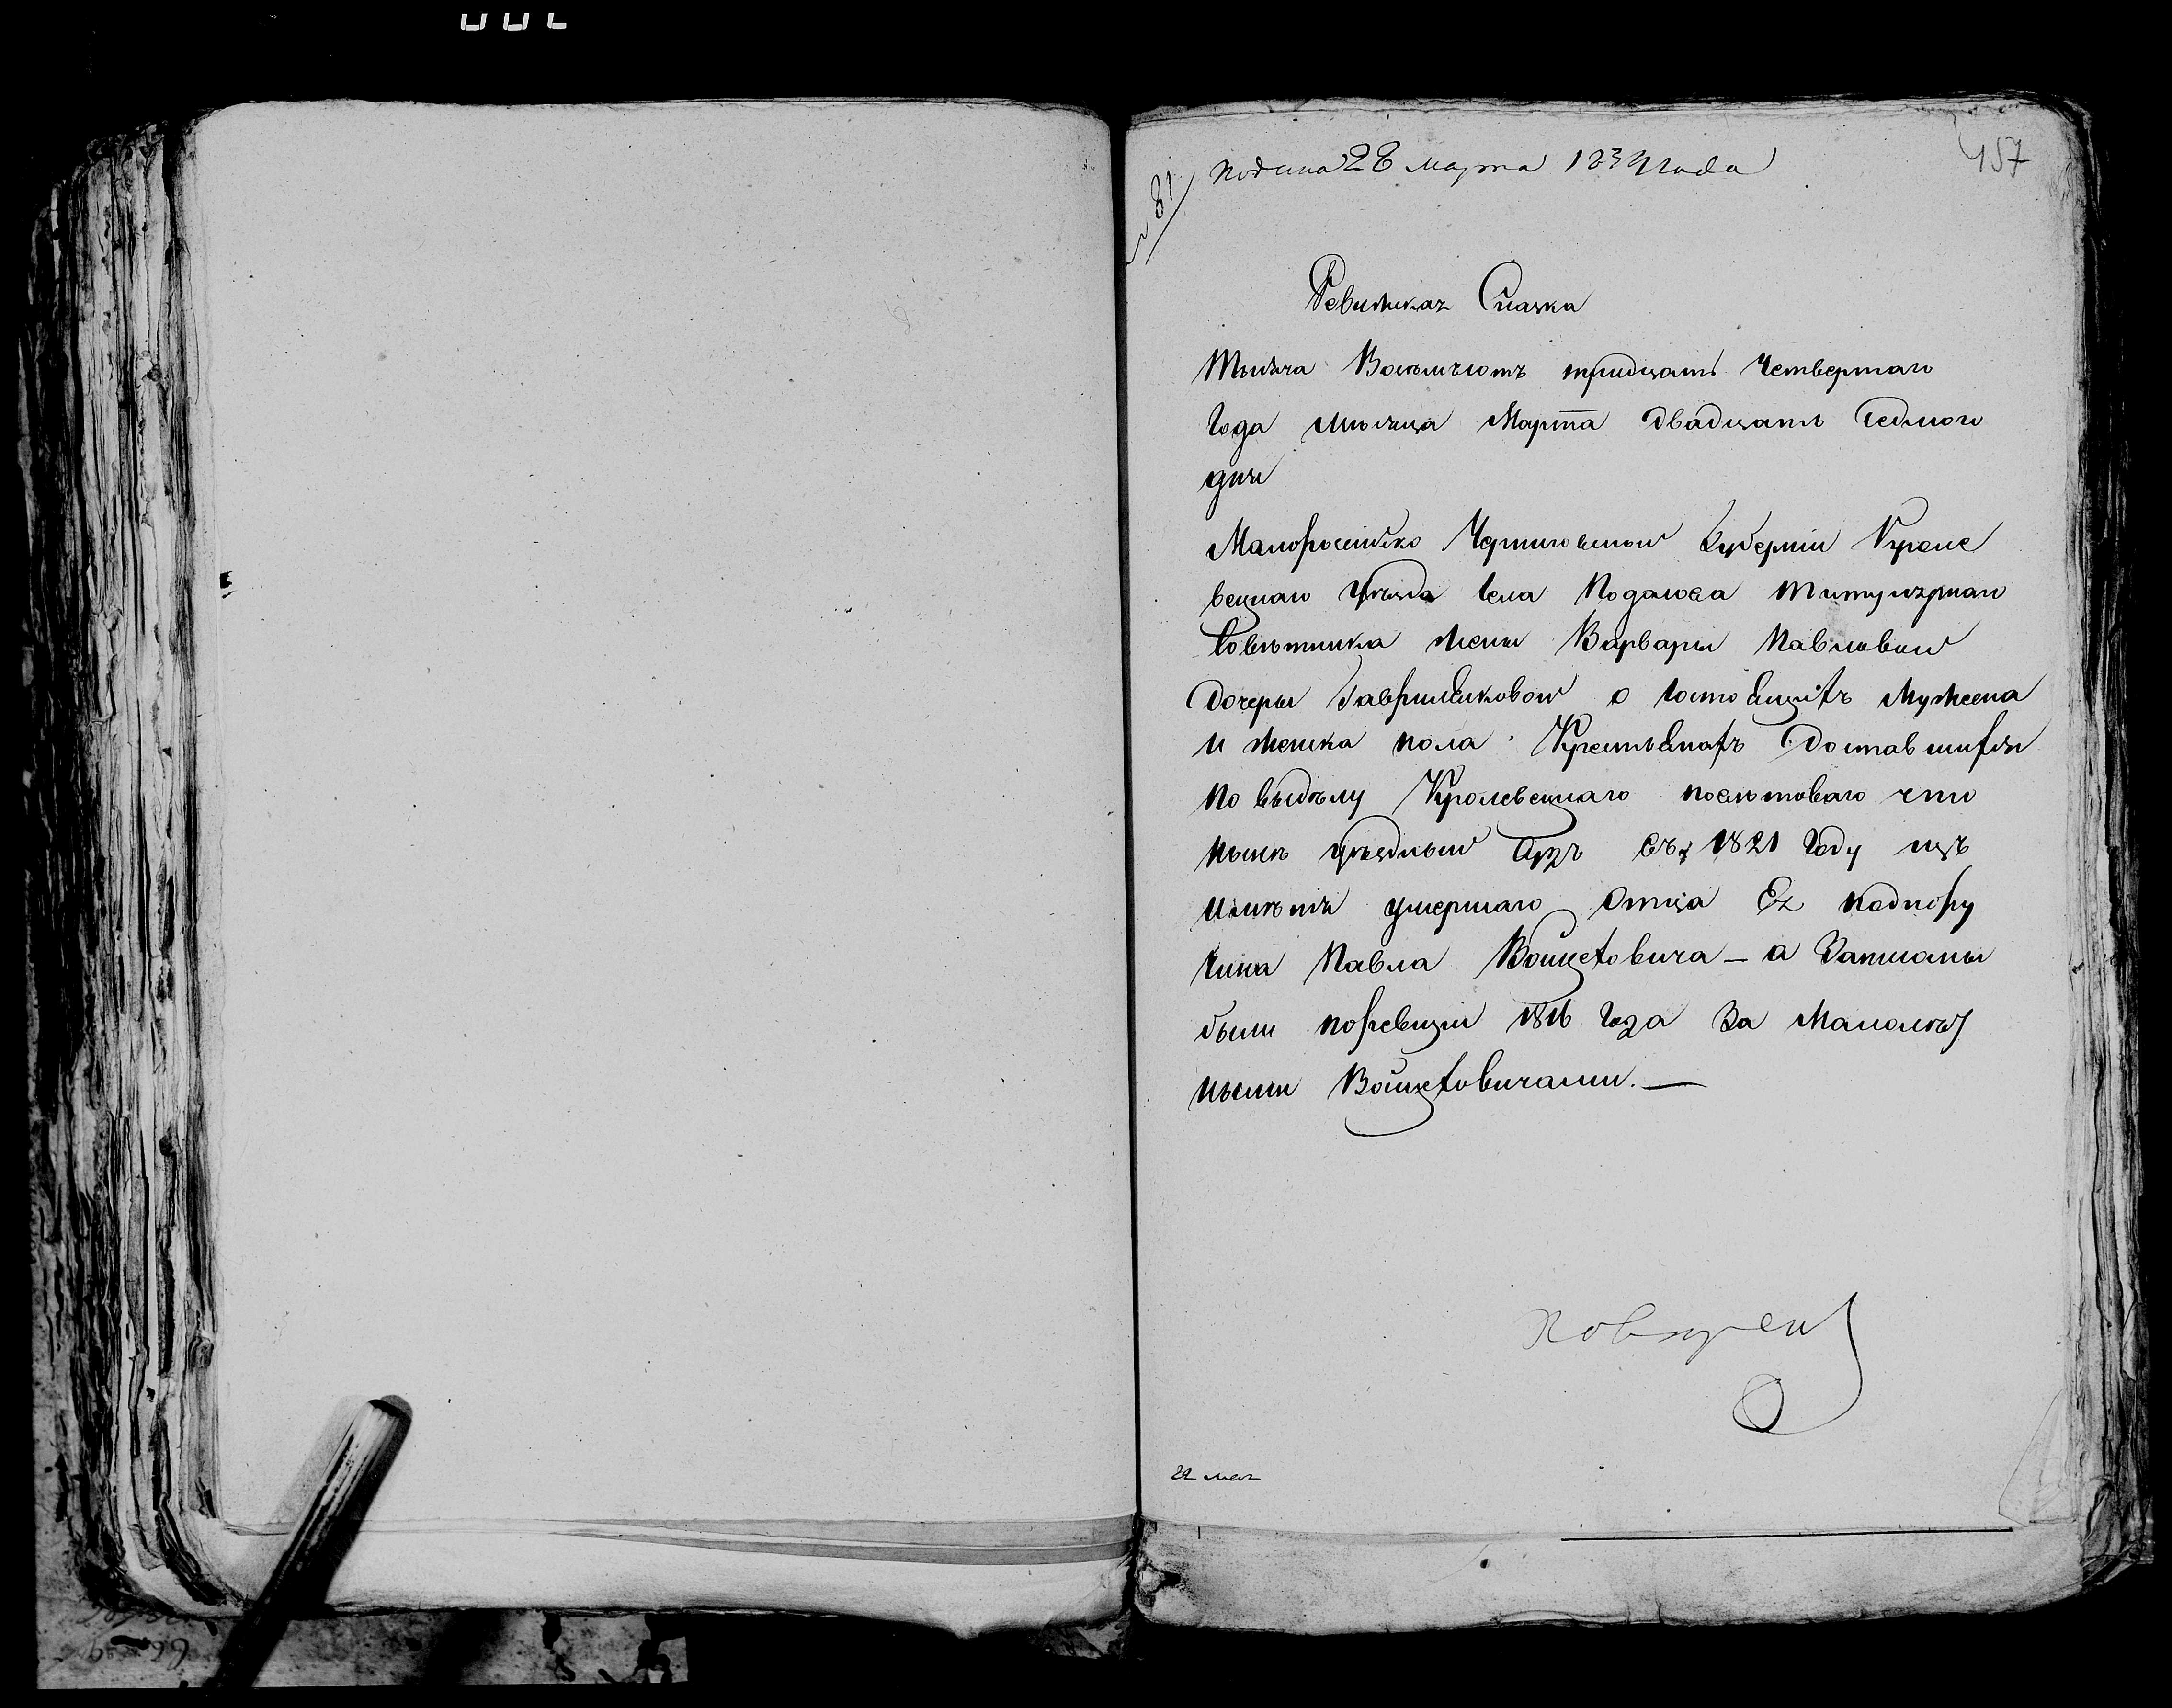 № 81
подана 28 марта 1834 года
157
Ревижская Сказка
Тысяча Восемьсотъ тридцать Четвертаго
Года месяца Марта двадцать Седмого
дня
Малоросейско Черниговской Губерніи Кроле
вецкаго Уезда Села Подолова Титулярнаго
Советника жены Варвары Павловой
Дочеры Гавриленковой о состоящихъ мужеска
и женска пола Крестьянахъ Доставшихся
по выделу Кролевецкаго поветоваго что
ныне уездный Судъ въ 1821 Году изъ
именія умершаго Отца Ея подпору
чика Павла Войцеховича — а Записаны
были поревизіи 1816 Года За Малолет
ными Войцеховичами. —